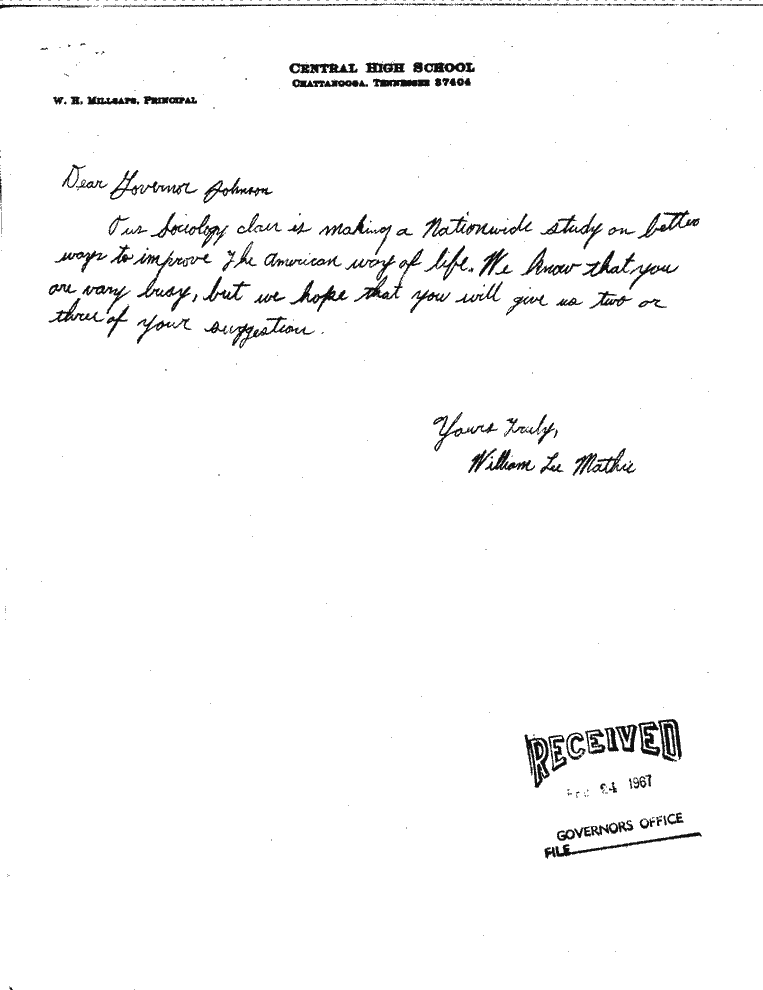 CENTRAL HIGH SCHOOL
CHATTANOOGA, TENNESSEE 37404
W. H. MILLSAPS, PRINCIPAL
Dear Governor Johnson
Our Sociology class is making a Nationwide study on better
ways to improve the American way of life. We know that you
are vary busy, but we hope that you will give us two or
three of your suggestion.
Yours Truly,
William Lee Mathis
RECEIVED
24 1967
GOVERNORS OFFICE
FILE